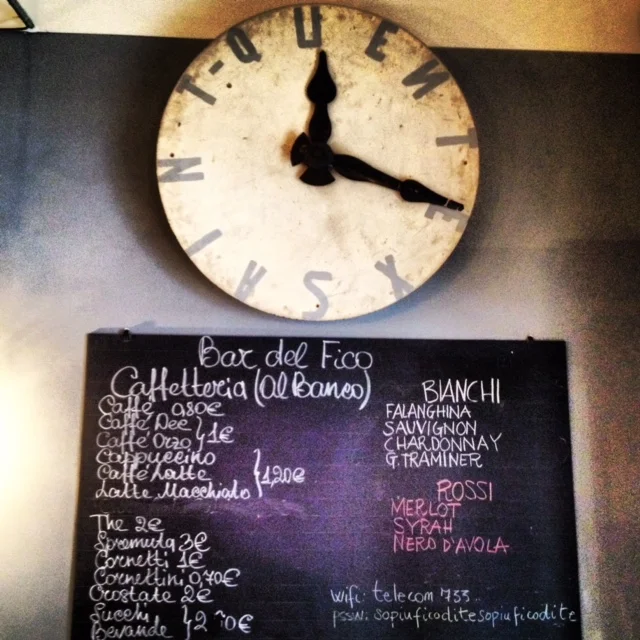 T-QUENTE XSAIN
Bar del Fico
Caffetteria (Al Banco)
Caffè 0,80€
Caffè Dec
Caffè Orzo } 1€
Cappuccino
Caffè Latte } 1,20€
Latte Macchiato
The 2€
Spremuta 3€
Cornetti 1€
Cornettini 0,70€
Crostate 2€
Succhi
Bevande
BIANCHI
FALANGHINA
SAUVIGNON
CHARDONNAY
G.TRAMINER
ROSSI
MERLOT
SYRAH
NERO D'AVOLA
Wifi: telecom 733
pssw: sopiuficoditesopiuficodite